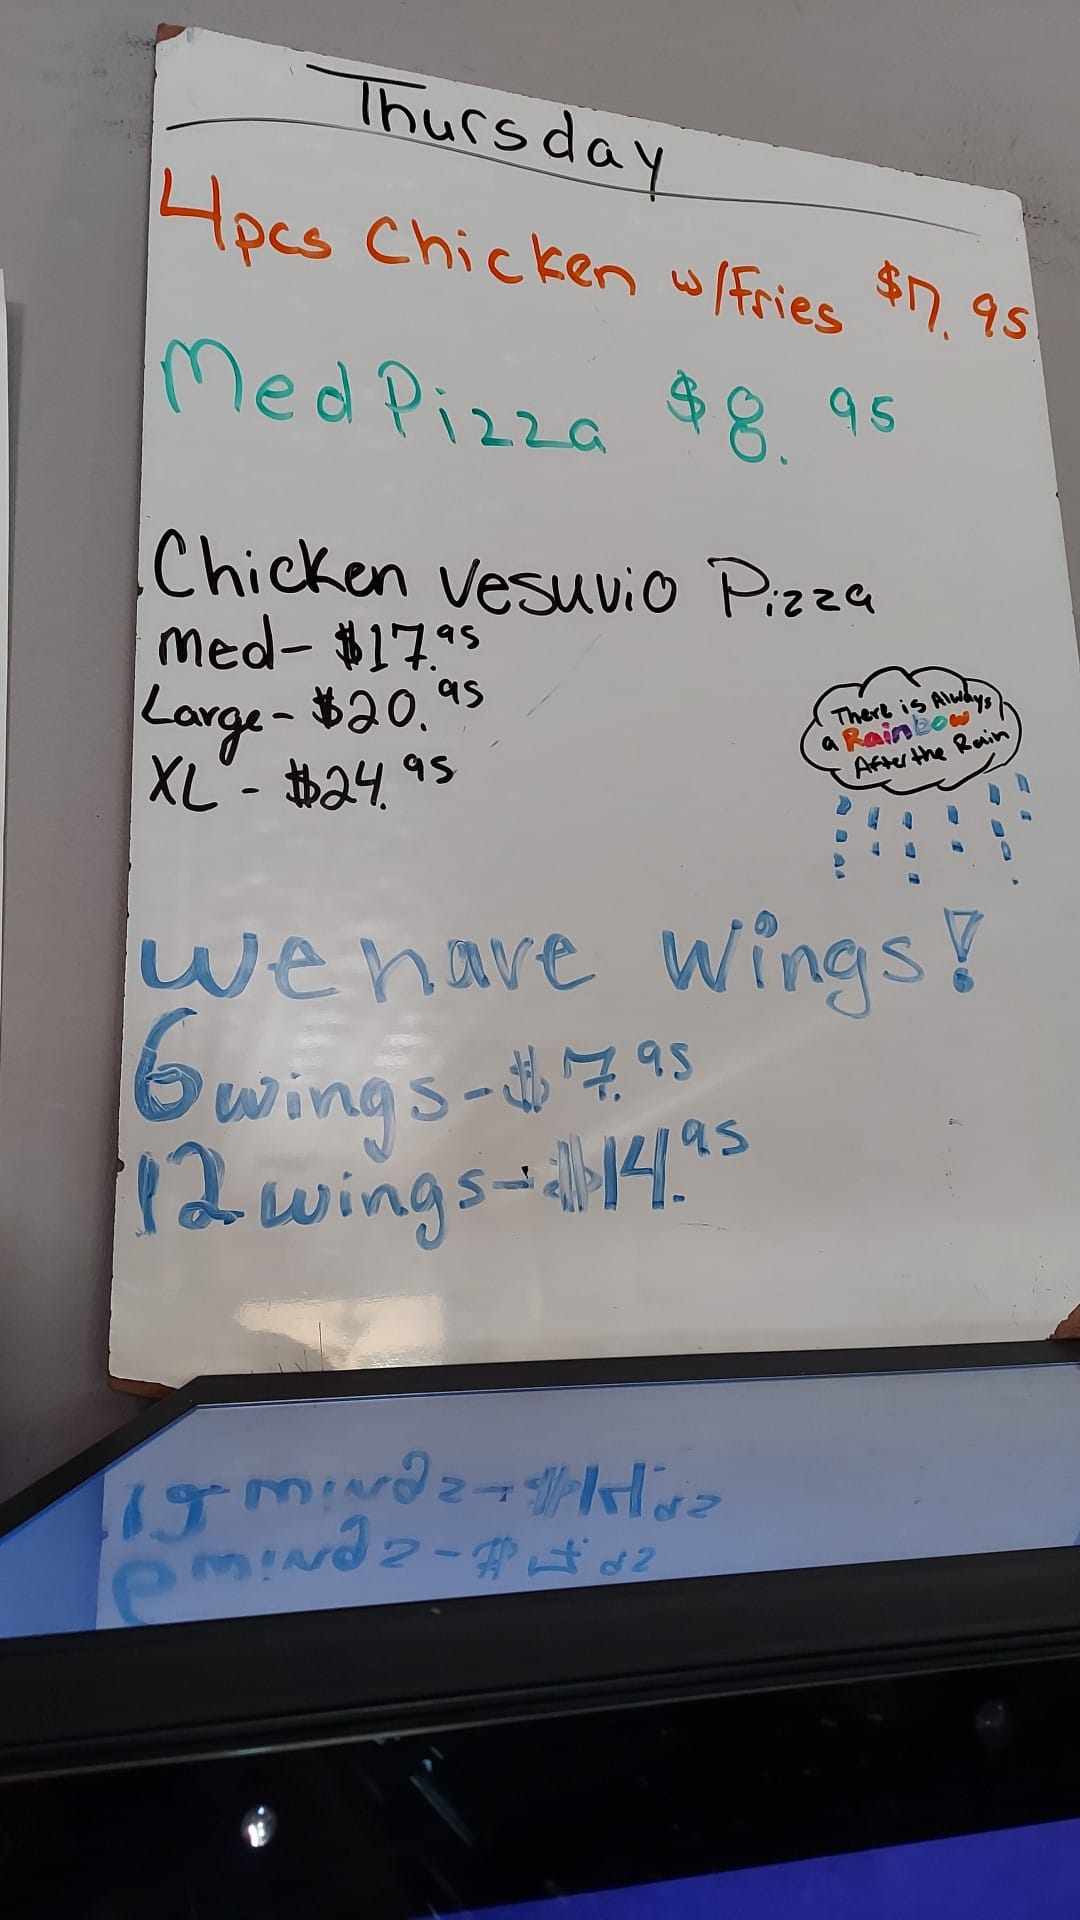 Thursday
4pcs Chicken w/Fries $7.95
Med Pizza $8.95
Chicken Vesuvio Pizza
Med- $17.95
Large- $20.95
XL - $24.95
There is Always
a Rainbow
After the Rain
We have Wings!
6 wings- $7.95
12 wings- $14.95